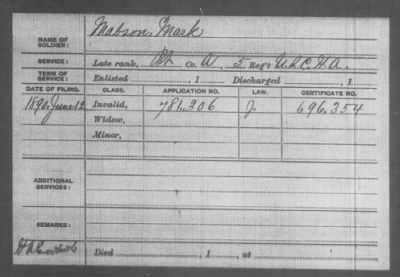 NAME OF SOLDIER: Mabson, Mark
SERVICE: Late rank, Co. 5 Reg't U.S.C.H.A.
TERM OF SERVICE: Enlisted , 1 Discharged , 1
DATE OF FILING. CLASS. APPLICATION NO. LAW. CERTIFICATE NO.
1890, June 12 Invalid, 781.306 J. 696.354
Widow,
Minor,
ADDITIONAL SERVICES:
REMARKS:
Died , 1 , at